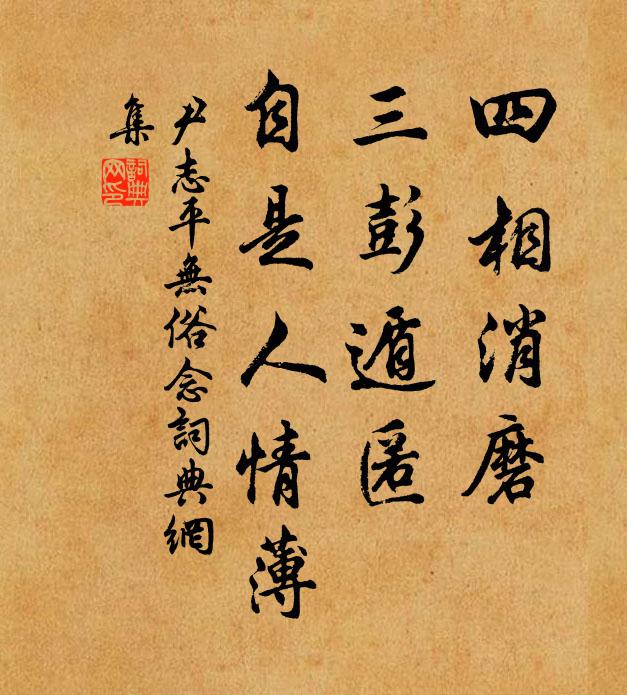 四相消磨
三彭遁匿
自是人情薄
尹志平無俗念詞典網
集
詞典網印